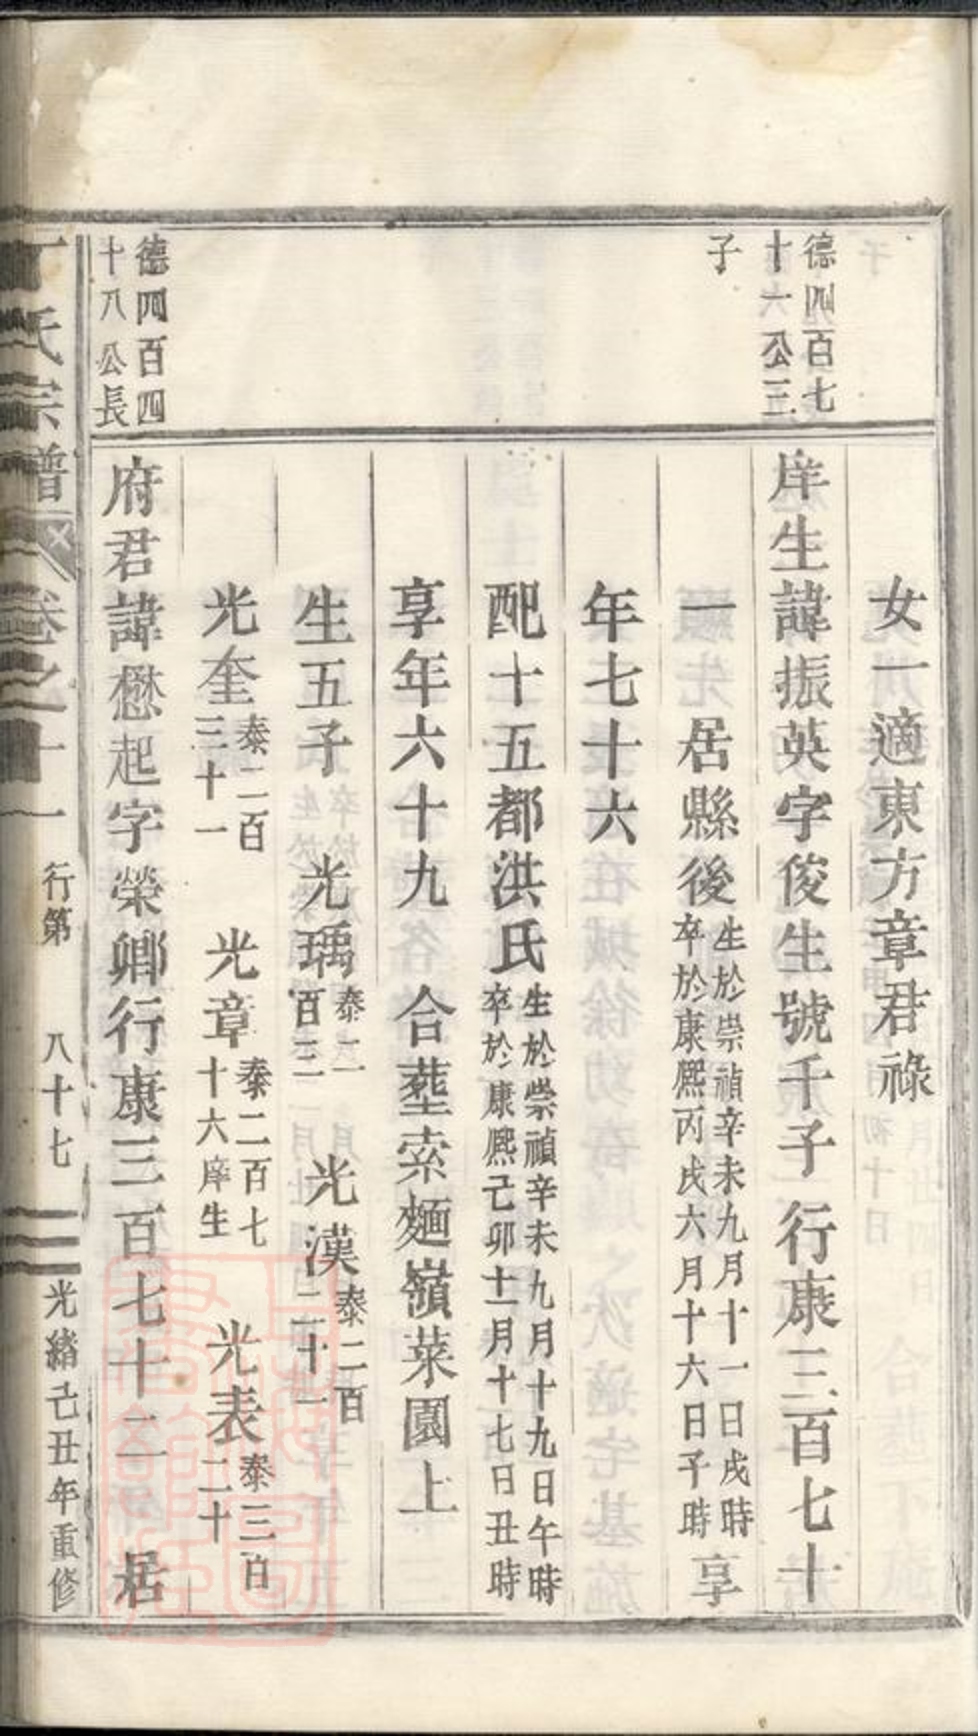 女一適東方章君祿
德四百七
十一公三
子
庠生諱振英字俊生號千子行康三百七十
一 居縣後
生於崇禎辛未九月十一日戌時
卒於康熙丙戌六月十六日子時
享
年七十六
配十五都洪氏
生於崇禎辛未九月十九日午時
卒於康熙己卯十一月十七日丑時
享年六十九 合塟索麵嶺菜園上
生五子 光瑀
泰二
百三
光漢
泰二百
二十一
光奎
泰二百
三十一
光章
泰二百七
十六庠生
光表
泰三百
二十
德四百四
十八公長
府君諱懋起字榮卿行康三百七十二 居
丁氏宗譜 卷之十一 行第 八十七 光緒己丑年重修